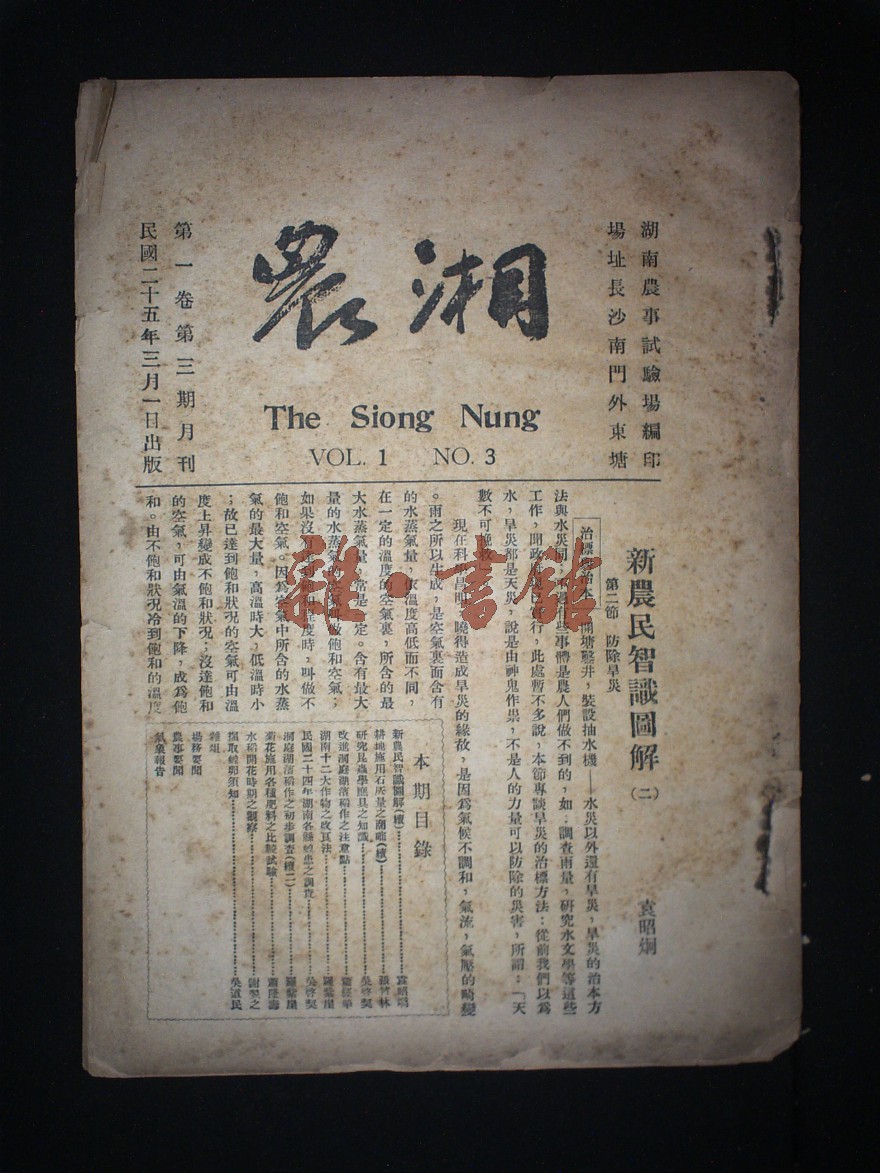 湖南農事試驗場編印
場址長沙南門外東塘
湘農
The Siong Nung
VOL. 1 NO. 3
第一卷第三期月刊
民國二十五年三月一日出版
新農民智識圖解(二)
袁昭烱
第二節 防除旱災
開塘鑿井,裝設抽水機——水災以外還有旱災,旱災的治本方
法與水災同,
有些事體是農人們做不到的,如:調查雨量,研究水文學等這些
工作,聞政府
行,此處暫不多說,本節專談旱災的治標方法:從前我們以爲
水,旱災都是天災,說是由神鬼作祟,不是人的力量可以防除的災害,所謂:「天
數不可
現在科
昌明,曉得造成旱災的緣故,是因爲氣候不調和,氣流,氣壓的畸變
。雨之所以生成,是空氣裏面含有
的水蒸氣量,
溫度高低而不同,
在一定的溫度的空氣裏,所含的最
大水蒸氣量,常是一定。含有最大
量的水蒸氣的空氣叫做飽和空氣;
如果沒有
程度時,叫做不
飽和空氣。因爲空氣中所含的水蒸
氣的最大量,高溫時大,低溫時小
;故已達到飽和狀况的空氣可由溫
度上昇變成不飽和狀况;沒達飽和
的空氣,可由氣溫的下降,成爲飽
和。由不飽和狀况冷到飽和的溫度
本期目錄
新農民智識圖解(續)
耕地施用石灰量之商確(續)
研究昆蟲學應具之知識
吳啓契
改進洞庭湖濱稻作之注意點
湖南十二大作物之改良法
民國二十四年湖南各縣螟患之調查
吳啓契
洞庭湖濱稻作之初步調查(續二)
菊花施用各種肥料之比較試驗
水稻開花時期之觀察
採取螟卵須知
吳道民
雜俎
場務要聞
農事要聞
氣象報告
雜·書館